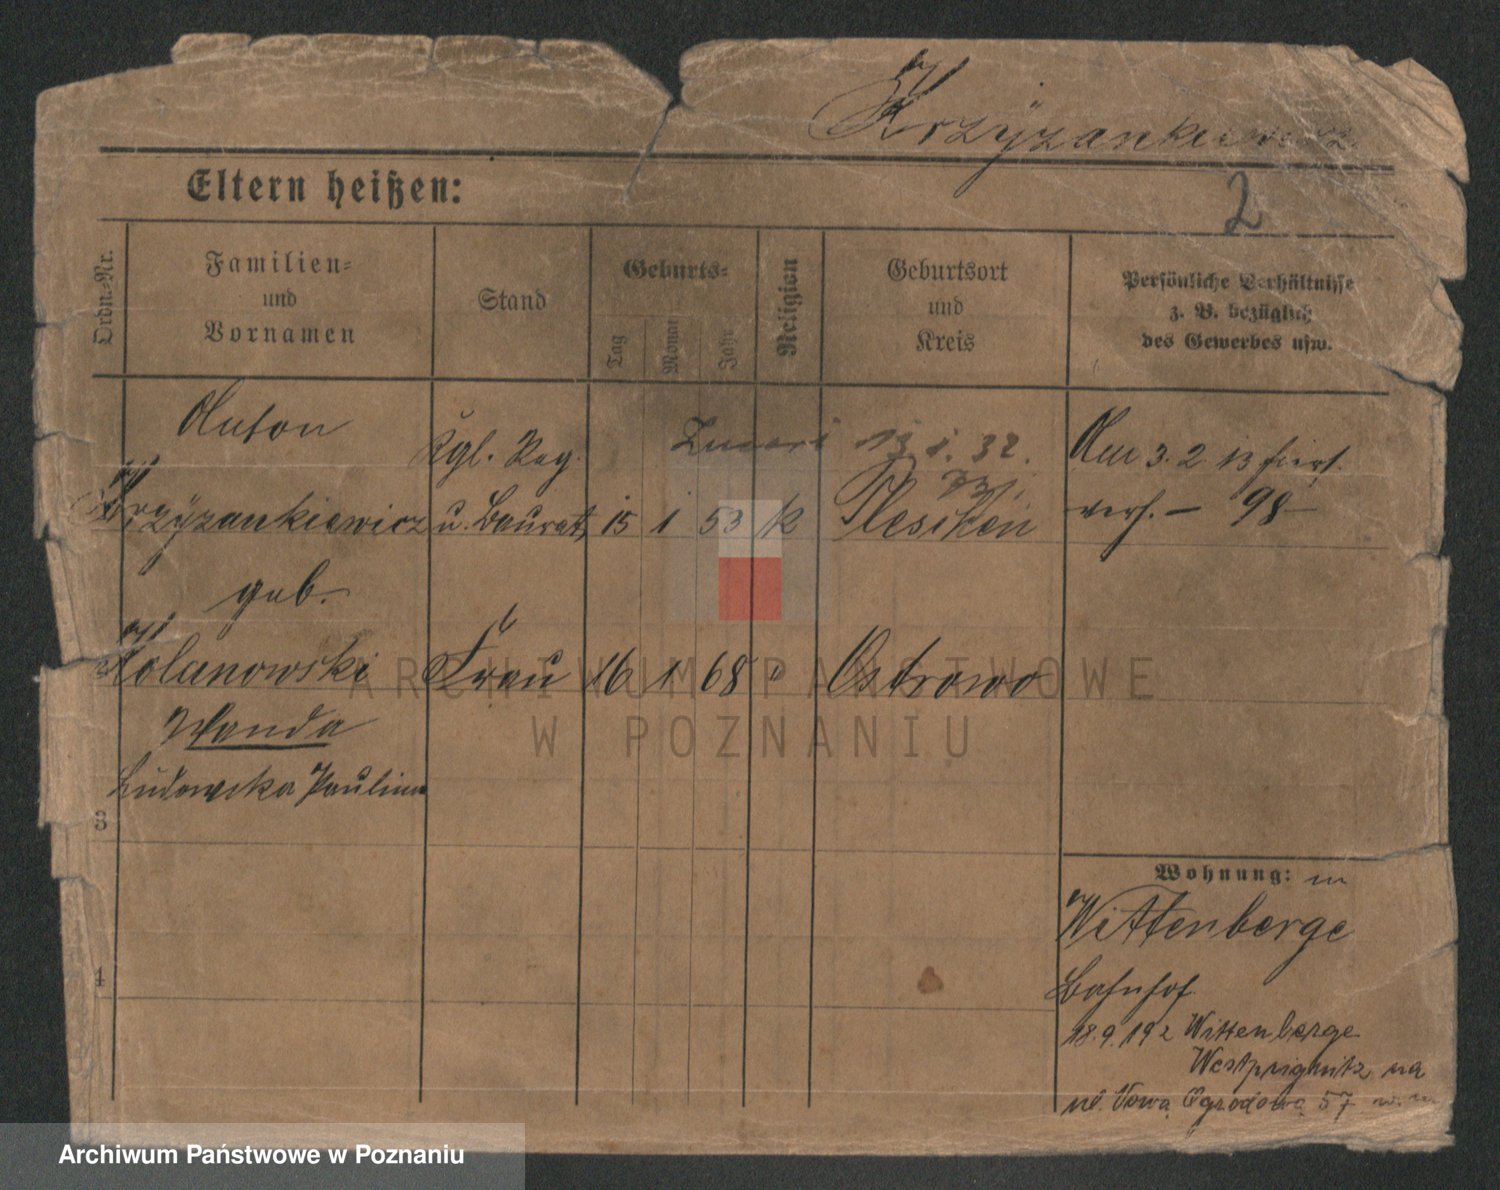 Krzÿzankiewicz
Eltern heißen:
2
Ordn.-Nr.
Familien-
und
Vornamen
Stand
Geburts-
Tag
Monat
Jahr
Religion
Geburtsort
und
Kreis
Persönliche Verhältnisse
z. B. bezüglich
des Gewerbes usw.
Anton
Kgl. Reg.
13.1.32.
Am 3.2 13
Krzÿzankiewicz u. Baurat, 15 1 53 k Pleschen
verh. – 98 –
geb.
Kolanowski Frau 16 1 68 " Ostrowo
Wanda
Ludowika Pauline
3
Wohnung: in
Wittenberge
Bahnhof
4
18.9.192 Wittenberge
Westprignitz na
ul. Nową Ogrodową 57
ARCHIWUM PAŃSTWOWE
W POZNANIU
Archiwum Państwowe w Poznaniu